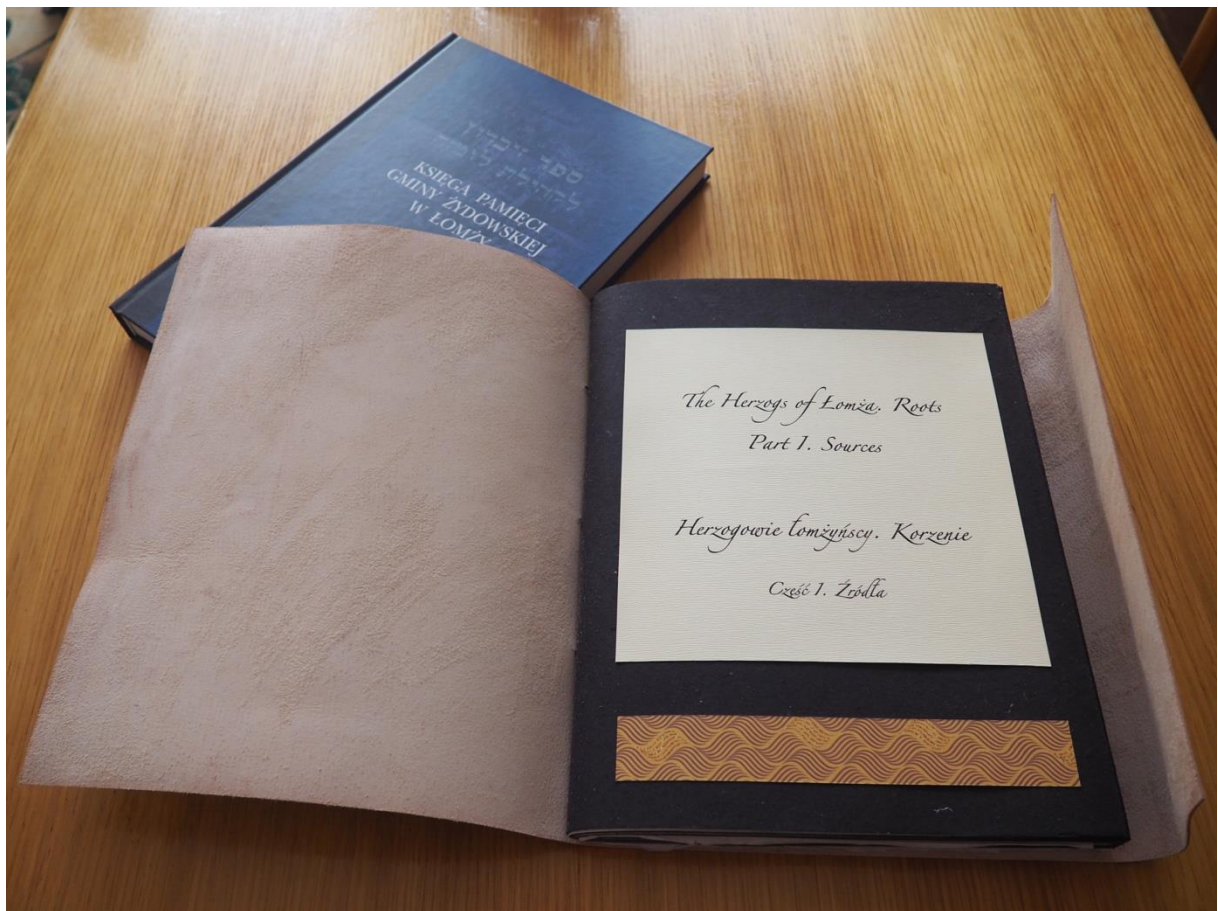 ספר זכרון
לקהילת לומזה
KSIĘGA PAMIĘCI
GMINY ŻYDOWSKIEJ
W ŁOMŻY
The Herzogs of Łomża. Roots
Part 1. Sources
Herzogowie łomżyńscy. Korzenie
Część 1. Źródła